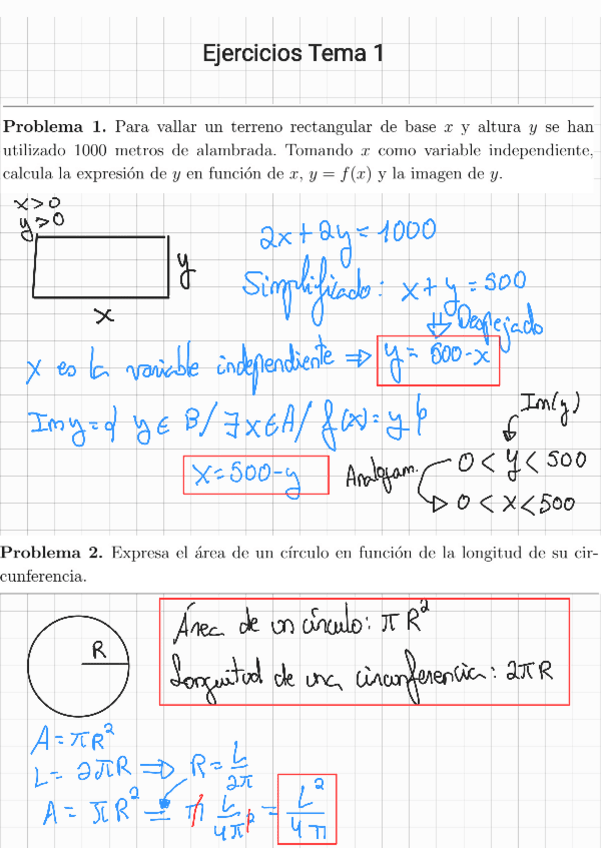 Ejercicios Tema 1
Problema 1. Para vallar un terreno rectangular de base x y altura y se han
utilizado 1000 metros de alambrada. Tomando x como variable independiente,
calcula la expresión de y en función de x, y = f(x) y la imagen de y.
x>0
y>0
y
x
2x+2y=1000
Simplificado: x+y=500
⇓ Despejado
x es la variable independiente ⇒ y = 500-x
Im y = { y ∈ B / ∃ x ∈ A / f(x) = y }
Im(y)
x=500-y
Analogam. 0 < y < 500
0 < x < 500
Problema 2. Expresa el área de un círculo en función de la longitud de su cir-
cunferencia.
R
Área de un círculo: πR²
Longuitud de una circunferencia: 2πR
A = πR²
L = 2πR ⇒ R = L/2π
A = πR² = π L²/4π² = L²/4π